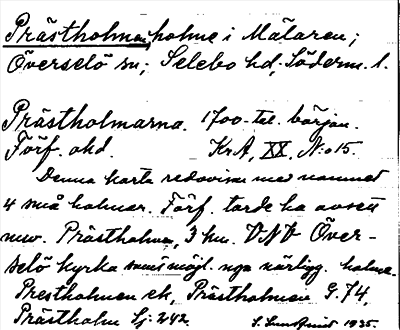 Prästholmen, holme i Mälaren;
Överselö sn; Selebo hd; Söderm. l.
Prästholmarna. 1700-tal. början.
Förf. okd. KrA, XX, N:o 15.
Denna karta redovisar med namnet
4 små holmar. Förf. torde ha avsett
nuv. Prästholmen, 3 km. VNV Över-
selö kyrka samt möjl. några närligg. holmar.
Prestholmen ek, Prästholmen G. 74,
Prästholm Lj: 242. S. 1935.